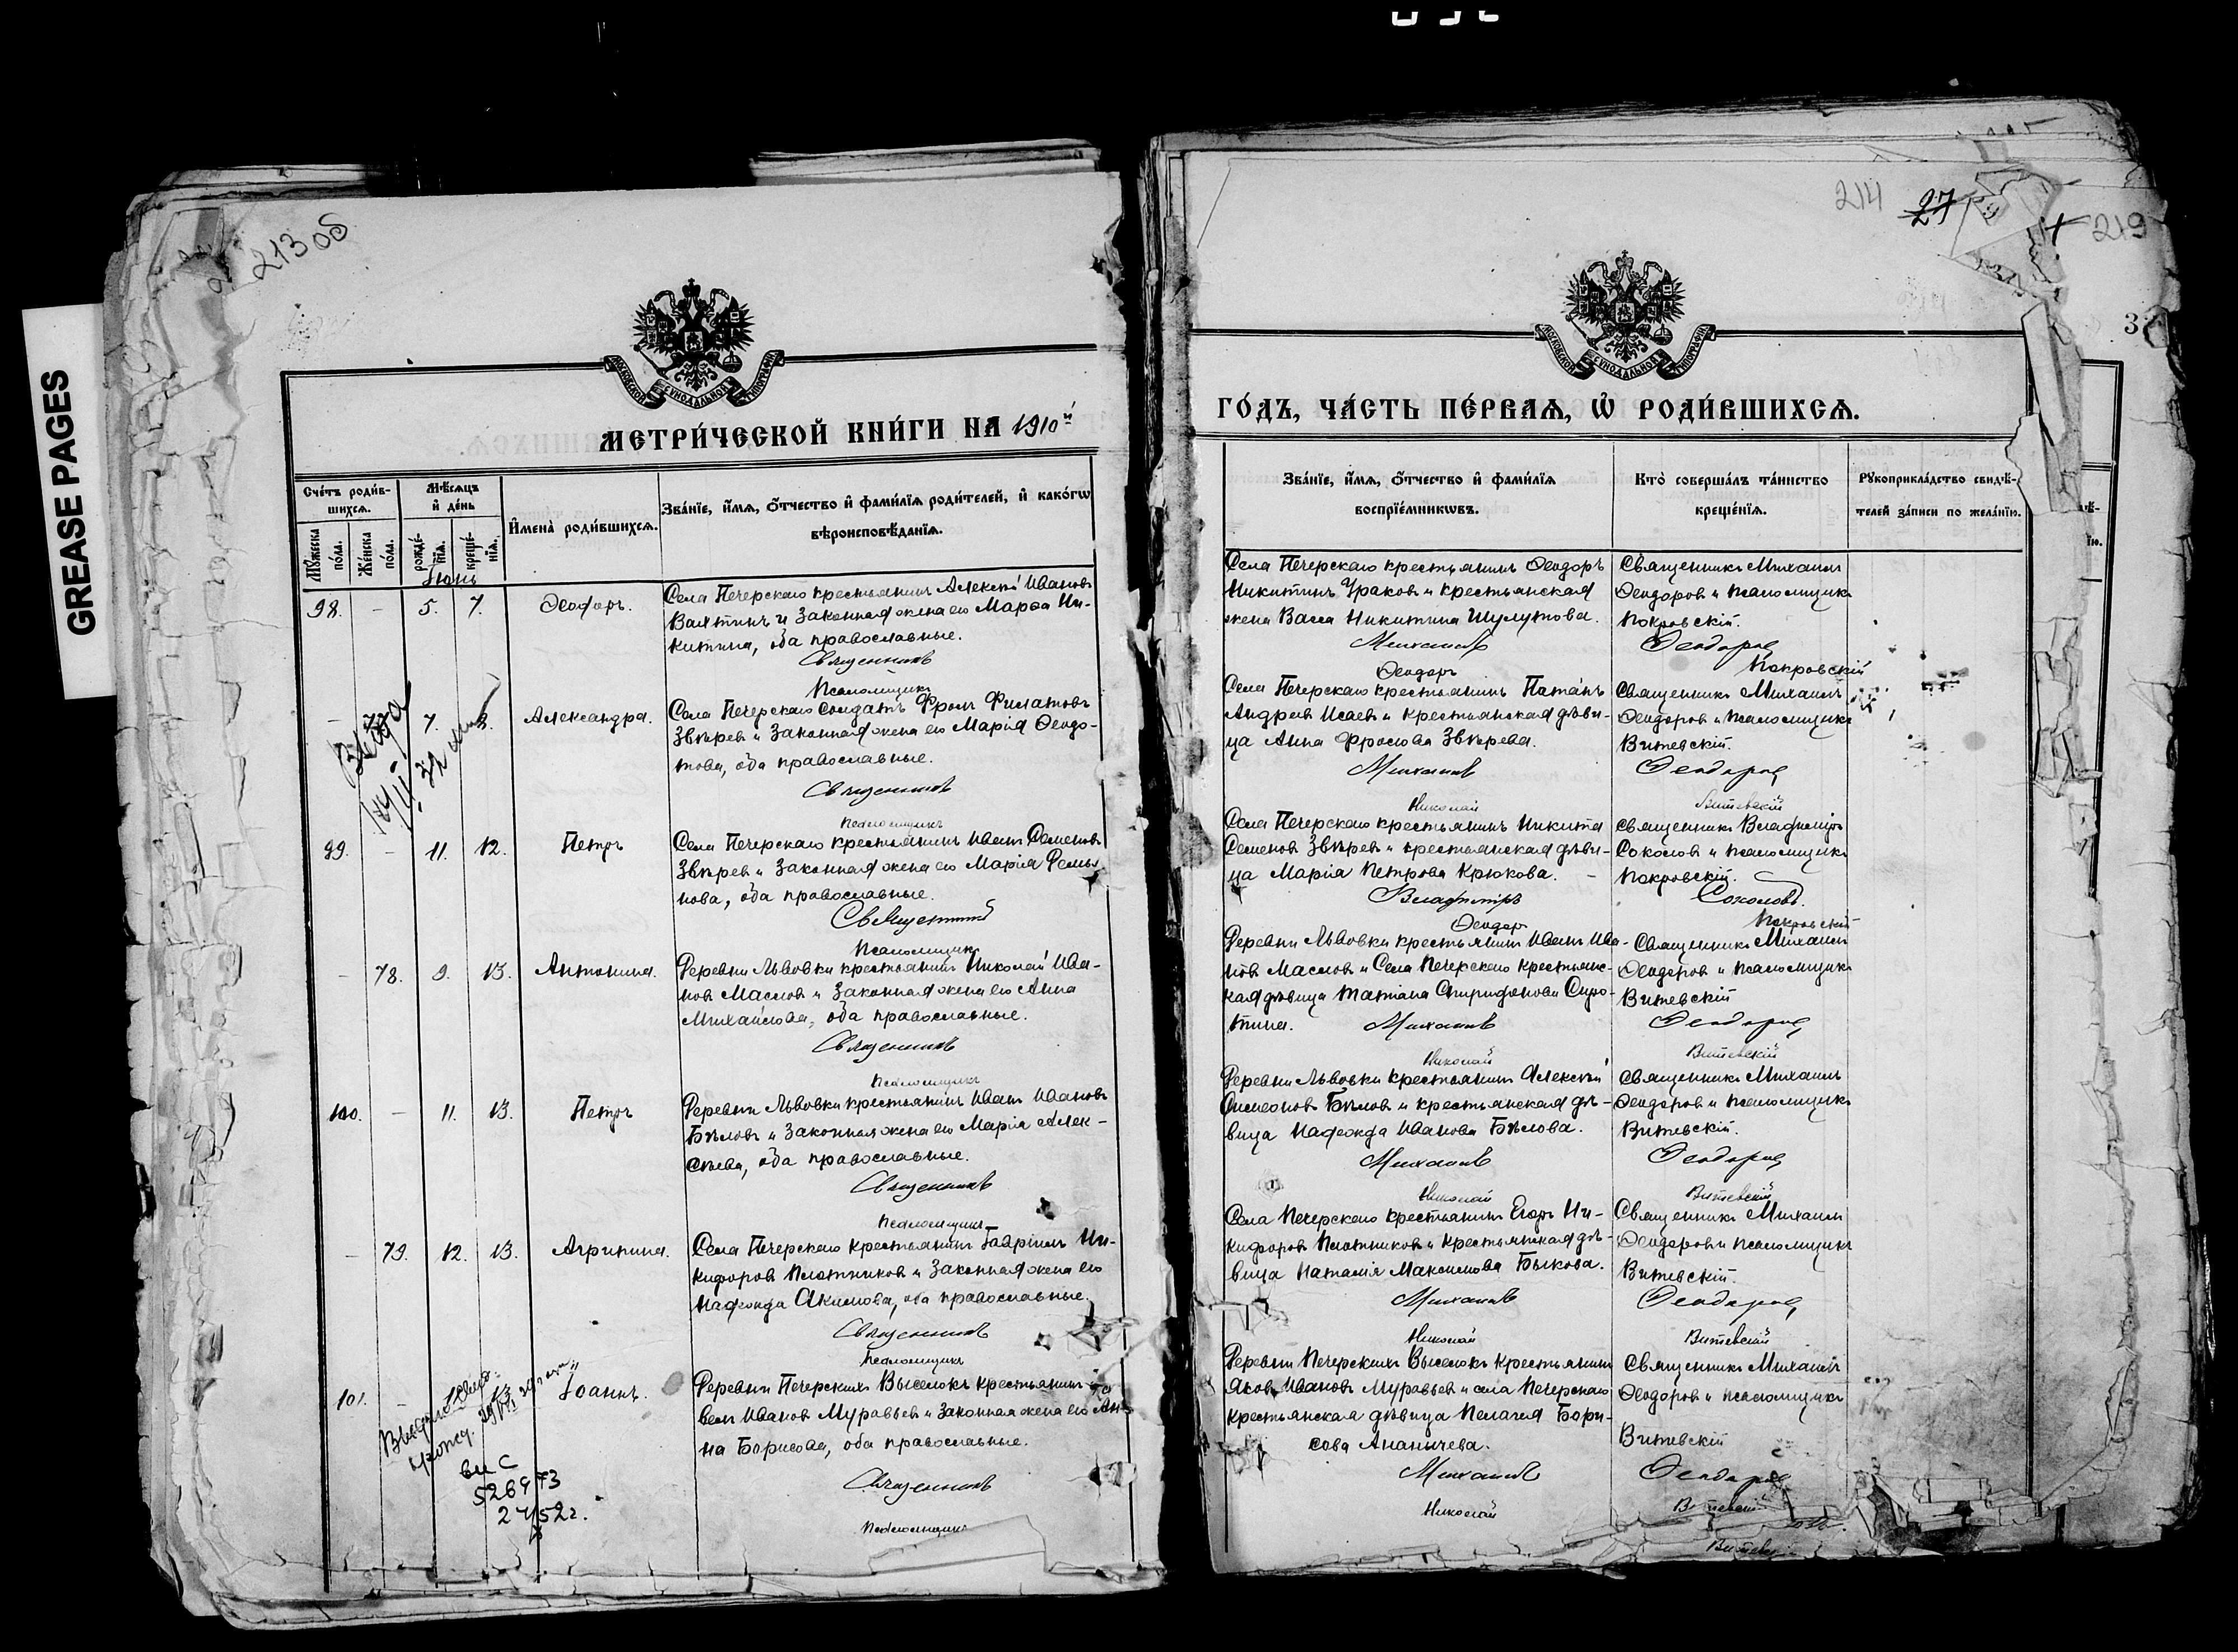 GREASE PAGES
213 об
МОСКОВСКОЙ СѴНОДАЛЬНОЙ ТИПОГРАФІИ
МЕТРИ́ЧЕСКОЙ КНИ́ГИ НА 1910й
Сче́тъ роди́в-
шихсѧ.
Мѣ́сяцъ
и҆ де́нь
Мꙋ́жеска по́ла.
Же́нска по́ла.
рожде́-нїѧ.
креще́-нїѧ.
И҆мена̀ роди́вшихсѧ.
Зва́нїе, и҆́мѧ, ѻ҆́тчество и҆ фами́лїѧ роди́телей, и҆ како́гѡ
вѣроисповѣ́данїѧ.
Іюнь
98. - 5. 7. Ѳеодоръ.
Села Печерскаго крестьянинъ Алексѣй Ивановъ
Вахтинъ и законная жена его Марѳа Ни-
китина, оба православные.
Священникъ
Псаломщикъ
- 7. 8. Александра.
Села Печерскаго солдатъ Фролъ Филатовъ
Звѣревъ и законная жена его Марія Ѳеодо-
това, оба православные.
Священникъ
Псаломщикъ
99. - 11. 12. Петръ
Села Печерскаго крестьянинъ Иванъ Семеновъ
Звѣревъ и законная жена его Марія
нова, оба православные.
Священникъ
Псаломщикъ
- 78. 9. 13. Антонина.
Деревни Львовки крестьянинъ Николай Ива-
новъ Масловъ и законная жена его Анна
Михайлова, оба православные.
Священникъ
Псаломщикъ
100. - 11. 13. Петръ
Деревни Львовки крестьянинъ Иванъ Ивановъ
Бѣловъ и законная жена его Марія Алек-
сѣева, оба православные.
Священникъ
Псаломщикъ
- 79. 12. 13. Агрипина.
Села Печерскаго крестьянинъ Гавріилъ Ни-
кифоровъ Плотниковъ и законная жена его
Надежда Акимова, оба православные.
Священникъ
Псаломщикъ
101. - Іоаннъ.
Деревни Печерскихъ Выселокъ крестьянинъ Па-
велъ Ивановъ Муравьевъ и законная жена его Ан-
на Борисова, оба православные.
Священникъ
Псаломщикъ
214 27 219
3
МОСКОВСКОЙ СѴНОДАЛЬНОЙ ТИПОГРАФІИ
ГО́ДЪ, ЧА́СТЬ ПЕ́РВАѦ, Ѡ҆ РОДИ́ВШИХСѦ.
Зва́нїе, и҆́мѧ, ѻ҆́тчество и҆ фами́лїѧ
воспрїе́мникѡвъ.
Кто̀ соверша́лъ та́инство
креще́нїѧ.
Рꙋкоприкла́дство свидѣ́-
телей за́писи по жела́нїю.
Села Печерскаго крестьянинъ Ѳеодоръ
Никитинъ Ураковъ и крестьянская
жена Васса Никитина Шулутова.
Михаилъ
Ѳеодоръ
Священникъ Михаилъ
Ѳеодоровъ и псаломщикъ
Покровскій.
Ѳеодоровъ
Покровскій
Села Печерскаго крестьянинъ
Андреевъ Исаевъ и крестьянская дѣви-
ца Анна Фролова Звѣрева.
Михаилъ
Николай
Священникъ Михаилъ
Ѳеодоровъ и псаломщикъ
Витевскій.
Ѳеодоровъ
Витевскій
Села Печерскаго крестьянинъ Никита
Семеновъ Звѣревъ и крестьянская дѣви-
ца Марія Петрова Крюкова. -
Владиміръ
Ѳеодоръ
Священникъ Владиміръ
Соколовъ и псаломщикъ
Покровскій.
Соколовъ.
Покровскій
Деревни Львовки крестьянинъ Иванъ Ива-
новъ Масловъ и села Печерскаго крестьянс-
кая дѣвица Татіана Спиридонова Сиро-
тина. Михаилъ
Николай
Священникъ Михаилъ
Ѳеодоровъ и псаломщикъ
Витевскій
Ѳеодоровъ
Витевскій
Деревни Львовки крестьянинъ Алексѣй
Симеоновъ Бѣловъ и крестьянская дѣ-
вица Надежда Иванова Бѣлова.
Михаилъ
Николай
Священникъ Михаилъ
Ѳеодоровъ и псаломщикъ
Витевскій.
Ѳеодоровъ
Витевскій
Села Печерскаго крестьянинъ Егоръ Ни-
кифоровъ Плотниковъ и крестьянская дѣ-
вица Наталія Максимова Быкова.
Михаилъ
Николай
Священникъ Михаилъ
Ѳеодоровъ и псаломщикъ
Витевскій.
Ѳеодоровъ
Витевскій
Деревни Печерскихъ Выселокъ крестьянинъ
Яковъ Ивановъ Муравьевъ и села Печерскаго
крестьянская дѣвица Пелагея Бори-
сова Ананычева.
Михаилъ
Николай
Священникъ Михаилъ
Ѳеодоровъ и псаломщикъ
Витевскій
Ѳеодоровъ
Витевскій